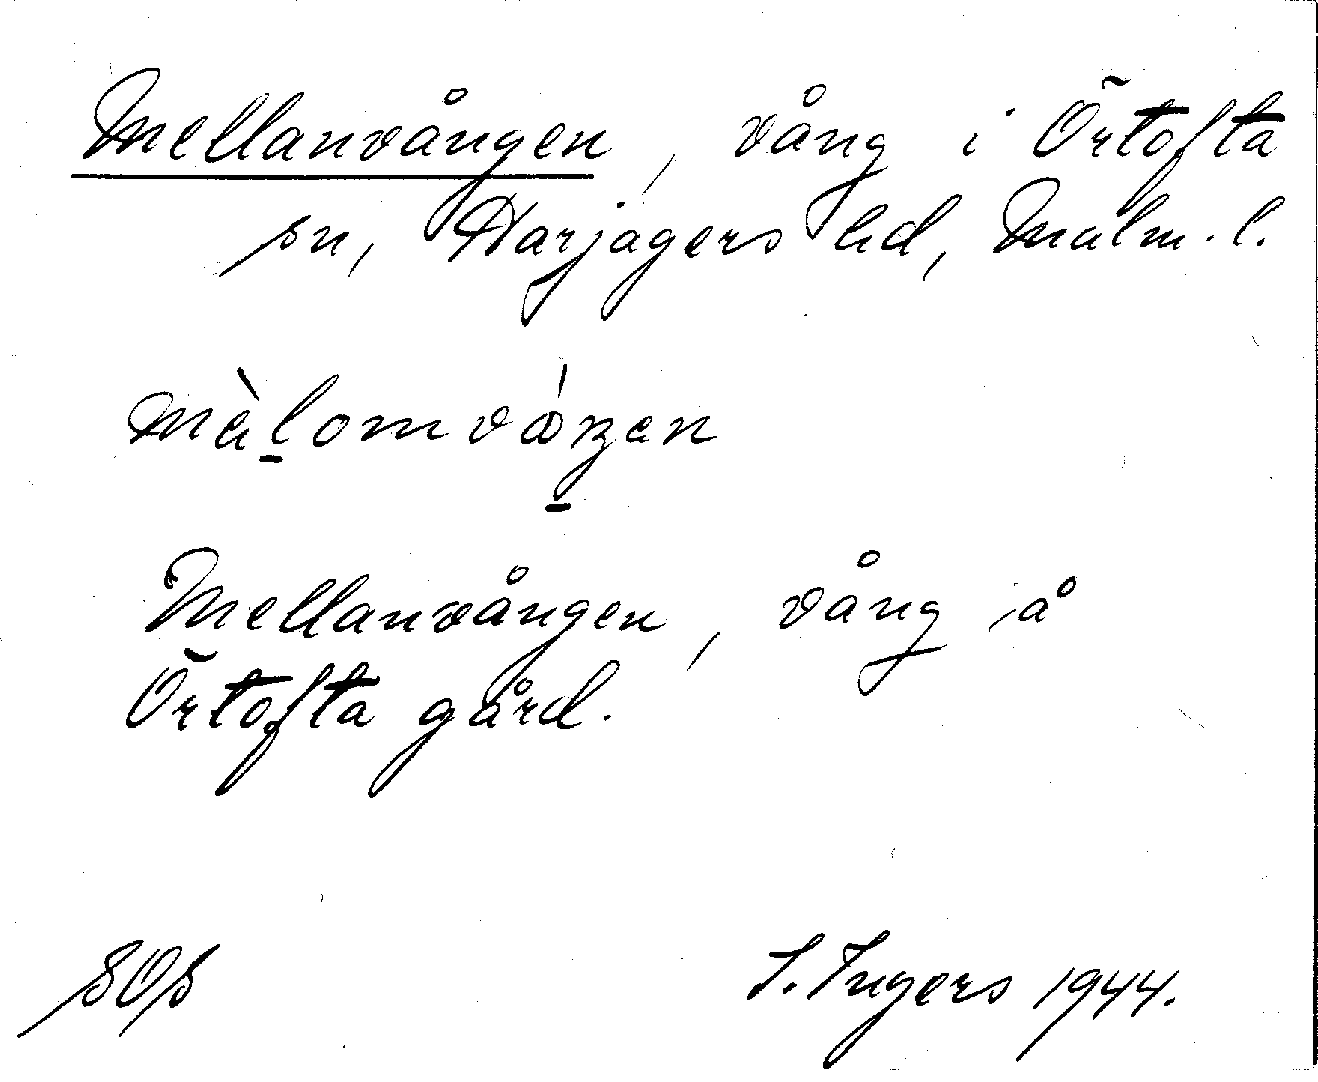 Mellanvången, vång i Örtofta
sn, Harjagers hd, Malm. l.
Mellanvången, vång å
Örtofta gård.
SOS I. Ingers 1944.